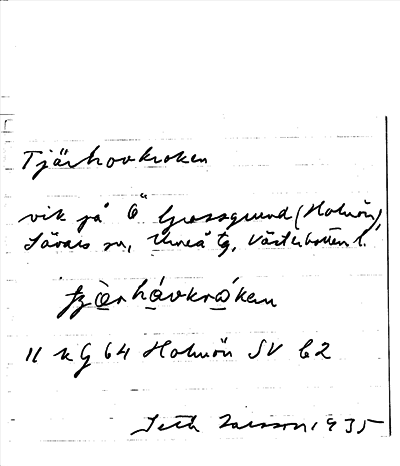 Tjärhovkroken
vik på ö Grossgrund (Holmön),
Sävars sn, Umeå tg, Västerbotten l.
hávkrákan
11 k G 64 Holmön SV b2
Seth Larsson 1935